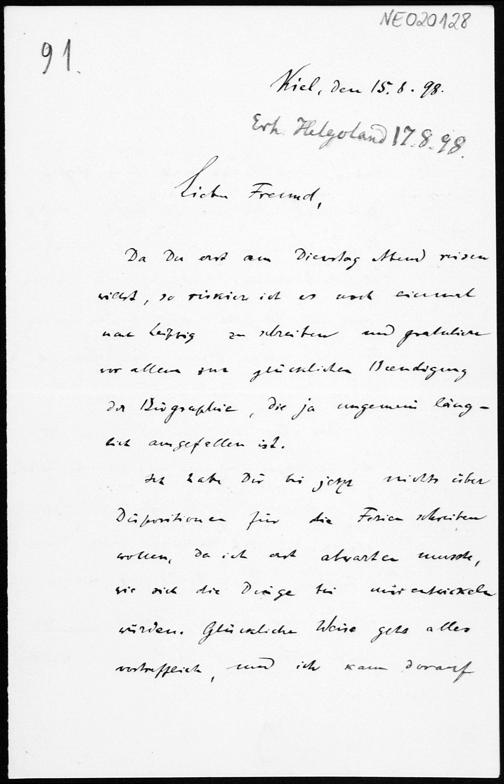 NE020128
91.
Kiel, den 15.8.98.
Erh. Helgoland 17.8.98.
Lieber Freund,
Da Du erst am Dienstag Abend reisen
willst, so riskier ich es noch einmal
nach Leipzig zu schreiben und gratuliere
vor allem zur glücklichen Beendigung
der Biographie, die ja ungemein läng-
lich ausgefallen ist.
Ich habe Dir bis jetzt nichts über
Dispositionen für die Ferien schreiben
wollen, da ich erst abwarten musste,
wie sich die Dinge bei mir entwickeln
würden. Glücklicher Weise geht alles
vortrefflich, und ich kann darauf